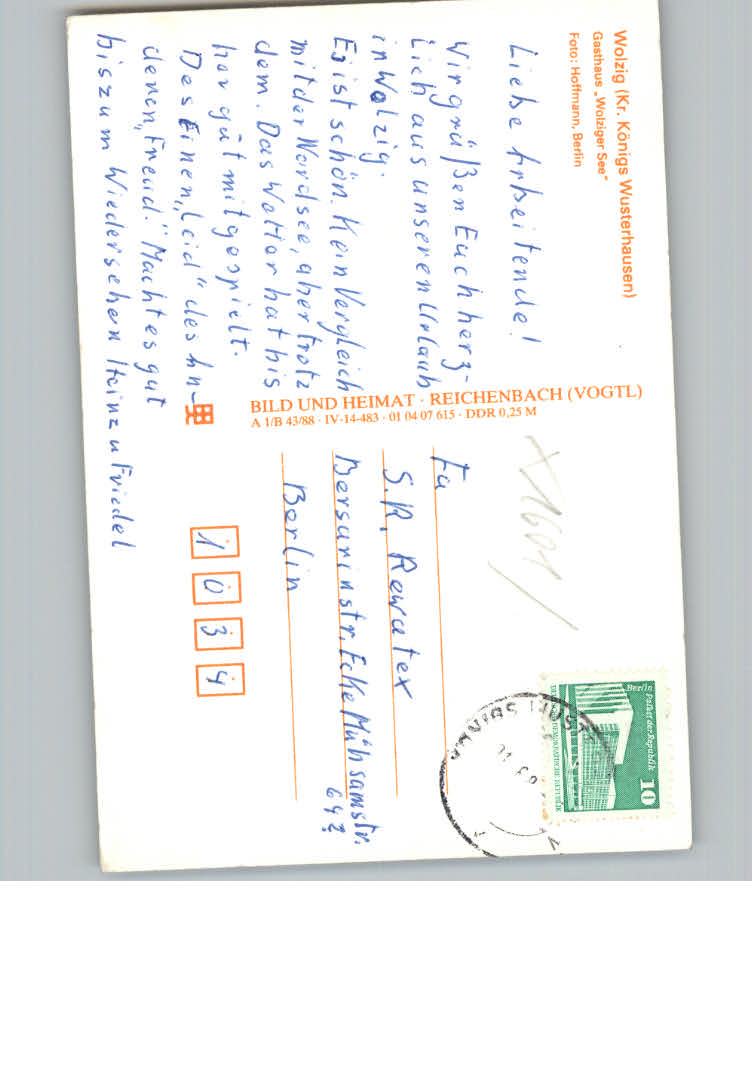 Wolzig (Kr. Königs Wusterhausen)
Gasthaus „Wolziger See“
Foto: Hoffmann, Berlin
Liebe Arbeitende!
Wir grüßen Euch herz-
lich aus unseren Urlaub
in Wolzig.
Es ist schön. Kein Vergleich
mit der Nordsee, aber trotz
dem. Das Wetter hat bis
her gut mitgespielt.
Des Einen „Leid“ des An-
deren „Freud.“ Macht es gut
bis zum Wiedersehen Heinz u Friedel
BILD UND HEIMAT · REICHENBACH (VOGTL)
A 1/B 43/88 · IV-14-483 · 01 04 07 615 · DDR 0,25 M
Fa
S.R. Rewatex
Bersarinstr. Ecke Mühsamstr.
64?
Berlin
1034
Berlin Palast der Republik
10
DEUTSCHE DEMOKRATISCHE REPUBLIK
KÖNIGS WUST